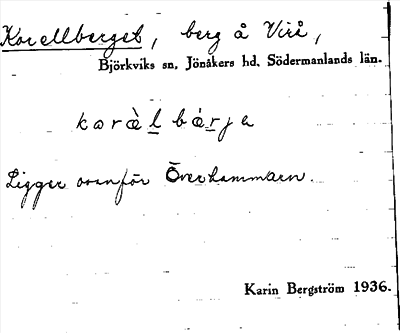 Korellberget, berg å Virå,
Björkviks sn, Jönåkers hd. Södermanlands län.
korὰl bárja
Ligger ovanför Överhammaren.
Karin Bergström 1936.